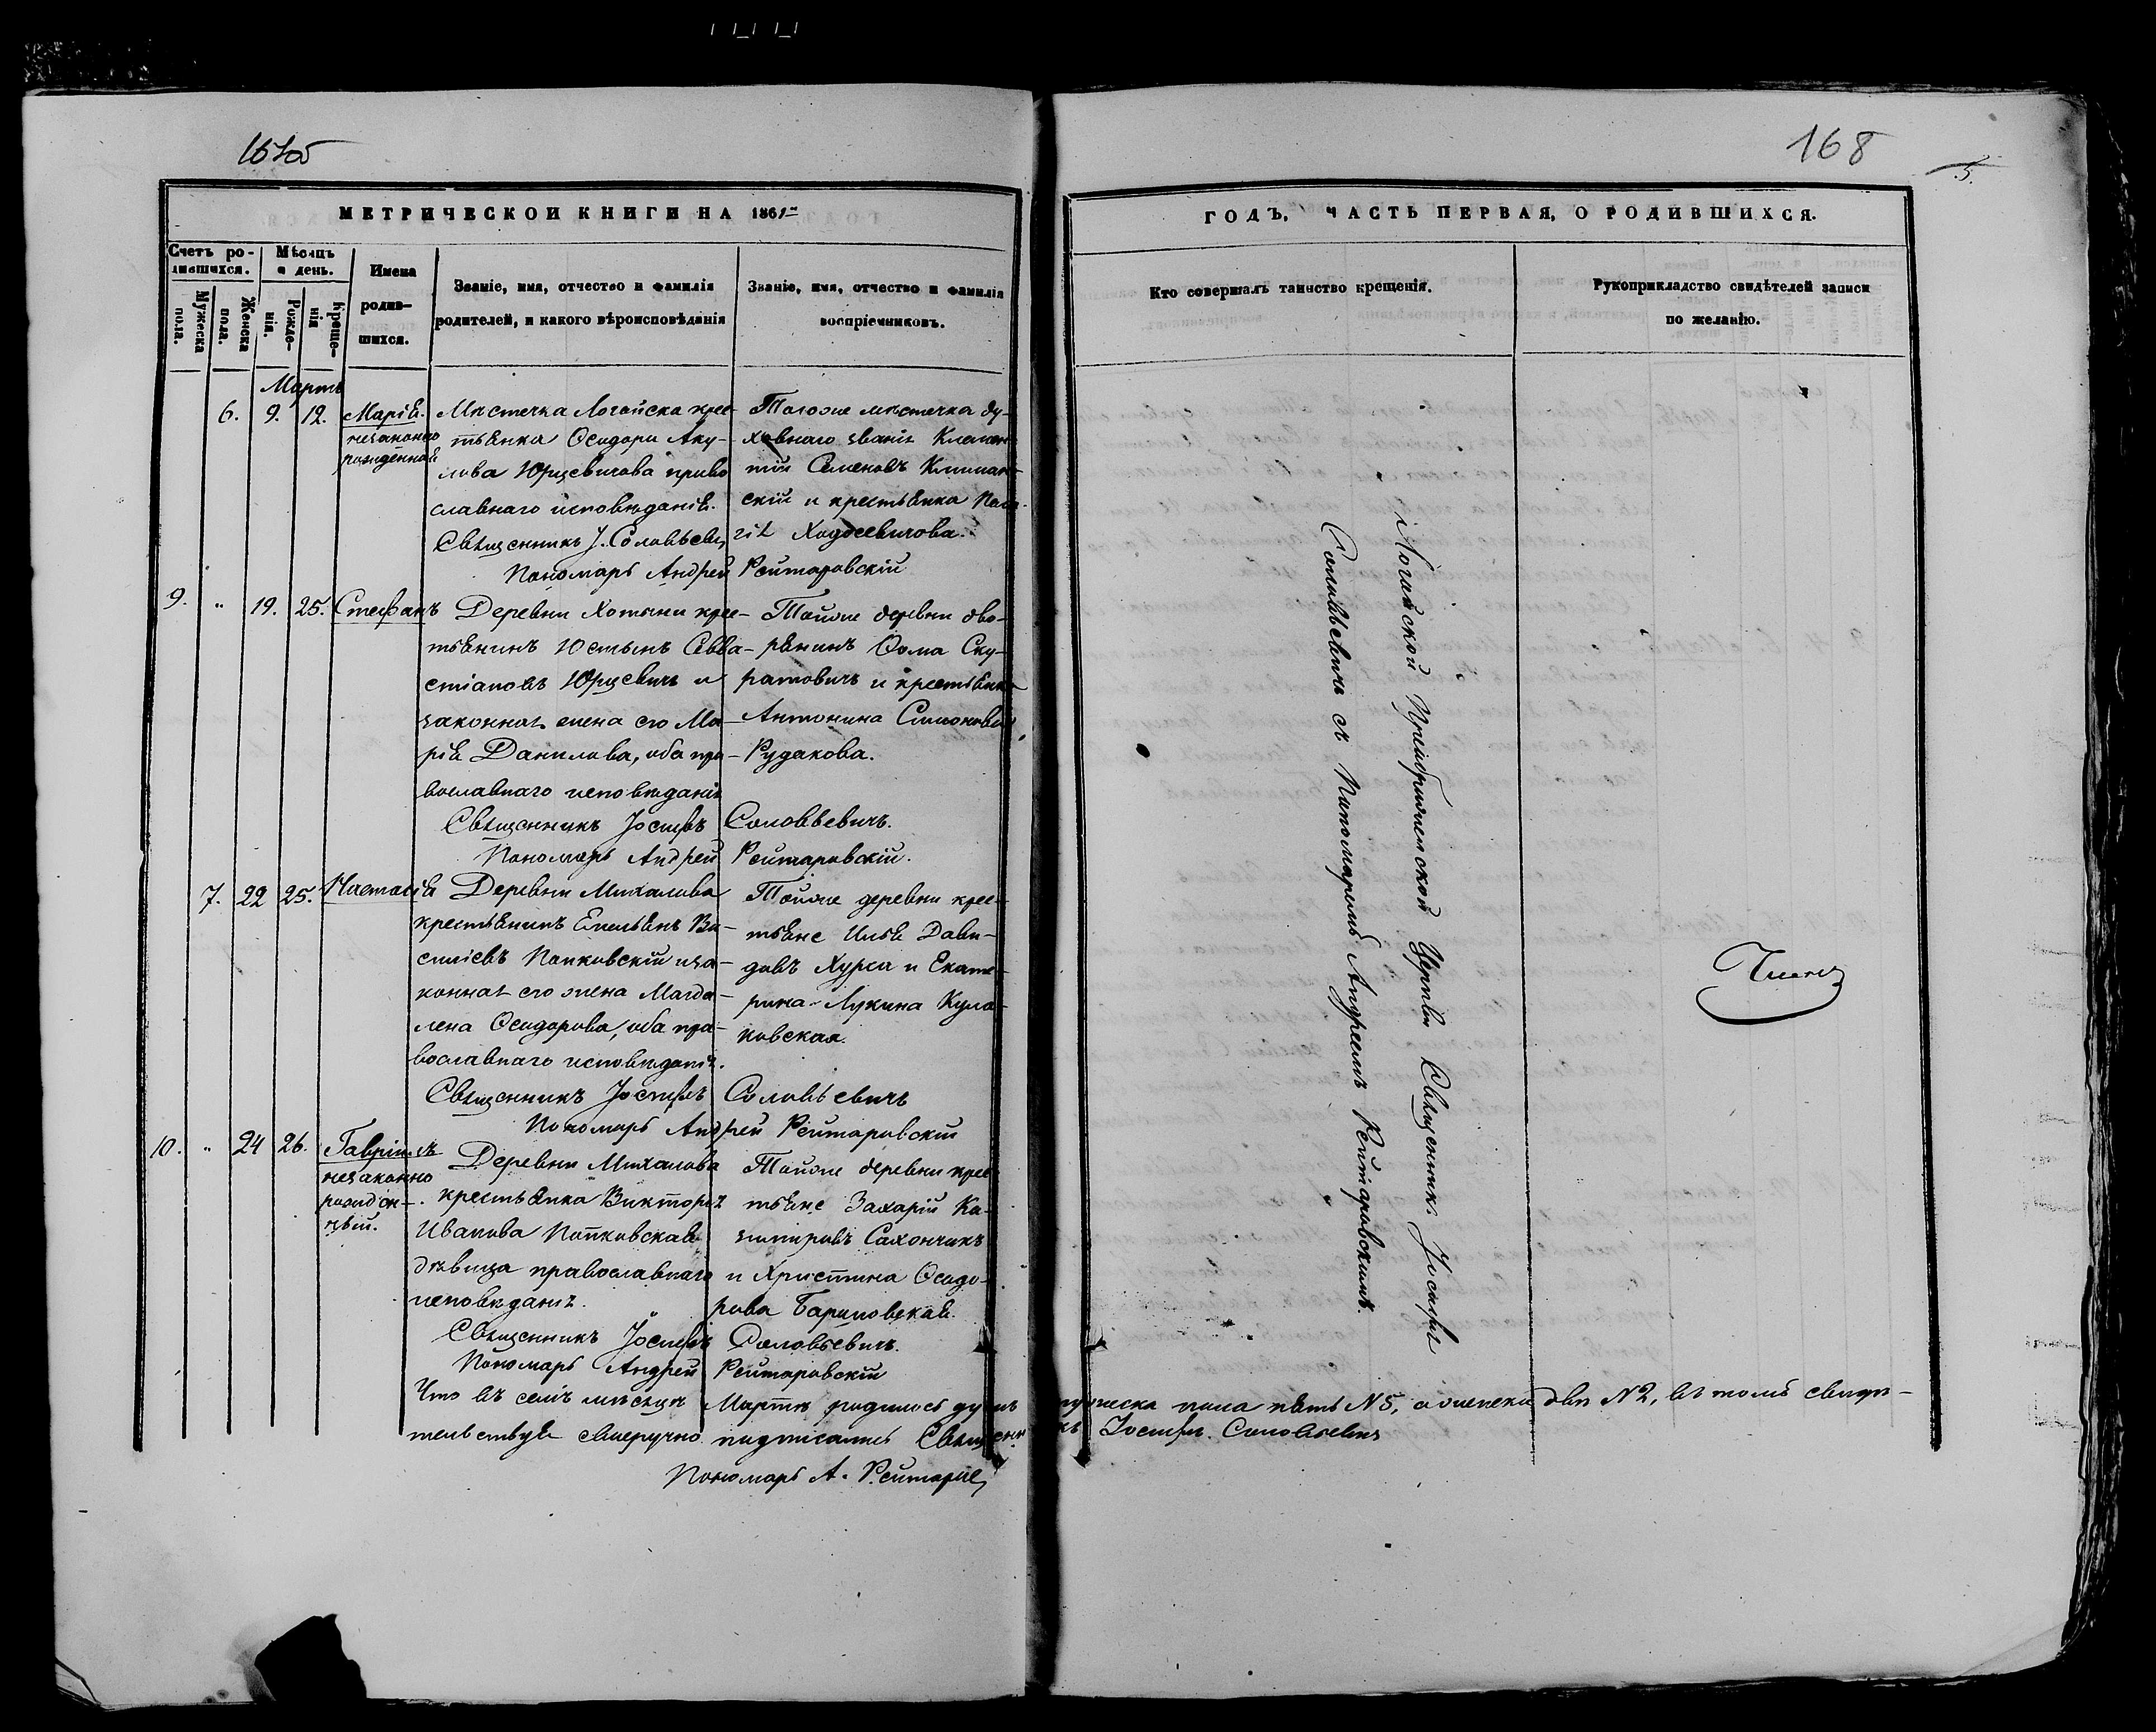 167об
168
5.
МЕТРИЧЕСКОЙ КНИГИ НА 1861й
ГОДЪ, ЧАСТЬ ПЕРВАЯ, О РОДИВШИХСЯ.
Счетъ ро-
дившихся.
Мужеска пола.
Женска пола.
Мѣсяцъ
и день.
Рожде-
нія.
Креще-
нія
Имена
родив-
шихся.
Званіе, имя, отчество и фамилія
родителей, и какого вѣроисповѣданія
Званіе, имя, отчество и фамилія
воспріемниковъ.
Кто совершалъ таинство крещенія.
Рукоприкладство свидѣтелей записи
по желанію.
Мартъ
6. 9. 12. Марія
незаконно
рожденная
Мѣстечка Логойска крес-
тьянка Осидора Аку-
лова Юрцевичова право
славнаго исповѣданія.
Священникъ І. Соловьевич
Пономарь Андрей Рейтаровскій
Тогоже мѣстечка ду-
ховнаго званія Клемен-
тій Семеновъ Климан-
скій и крестьянка Пела-
гія Ходосевичова.
9. „ 19. 25. Стефанъ
Деревни Хотыни крес-
тьянинъ Юстынъ Савва-
стіановъ Юрцевичъ и
законная жена его Ма-
рія Данилова, оба пра-
вославнаго исповѣданія
Священникъ Іосифъ Соловьевичъ.
Пономарь Андрей Рейтаровскій.
Тойже деревни дво-
рянинъ Ѳома Ску-
ратовичъ и крестьянка
Антонина Симонова
Рудакова.
7. 22 25. Настасія
Деревни Михалова
крестьянинъ Емельянъ Ва-
силіевъ Попковскій и за-
конная его жена Магда-
лена Осидорова, оба пра-
вославнаго исповѣданія.
Священникъ Іосифъ Соловьевичъ
Пономарь Андрей Рейтаровскій
Тойже деревни крес-
тьяне Илья Дави-
довъ Хурса и Екате-
рина Лукина Кула-
ковская.
10. „ 24 26. Гавріилъ
незаконно
рожден-
ный.
Деревни Михалова
крестьянка Викторія
Иванова Попковская
дѣвица православнаго
исповѣданія.
Священникъ Іосифъ Соловьевичъ.
Пономарь Андрей Рейтаровскій
Тойже деревни крес-
тьяне Захарій Ка-
зиміровъ Сахончикъ
и Христина Осидо-
рова Бариловская.
Логойской Преображенской Церкви Священникъ Іосифъ
Соловьевичъ съ Пономаремъ Андреемъ Рейтаровскимъ.
Что въ семъ мѣсяцѣ Мартѣ родилось душъ мужеска пола пять №5, а женска двѣ №2, въ томъ свидѣ-
тельствуя своеручно подписались Священникъ Іосифъ Соловьевичъ
Пономарь А. Рейтаров